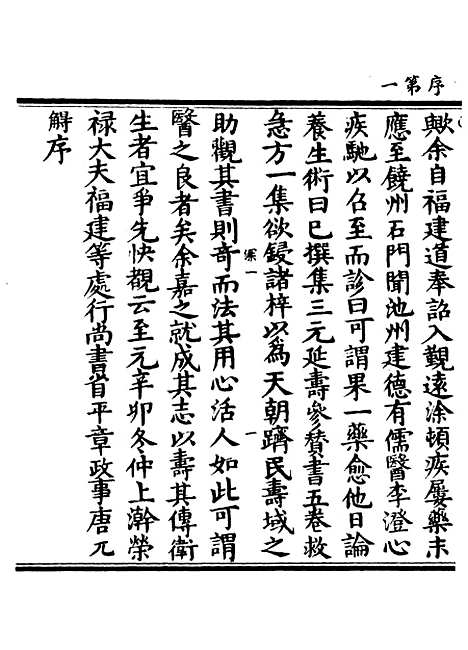 序第一
歟余自福建道奉詔入覲遠涂頓疾屢藥未
應至饒州石門聞池州建德有儒醫李澄心
疾馳以召至而診曰可謂果一藥愈他日論
養生術曰已撰集三元延壽參賛書五卷救
急方一集欲鋟諸梓以為天朝躋民壽域之
助觀其書則竒而法其用心活人如此可謂
醫之良者矣余嘉之就成其志以壽其傳衛
生者宜爭先快覩云至元辛卯冬仲上澣榮
禄大夫福建等處行尚書省平章政事唐兀
觧序